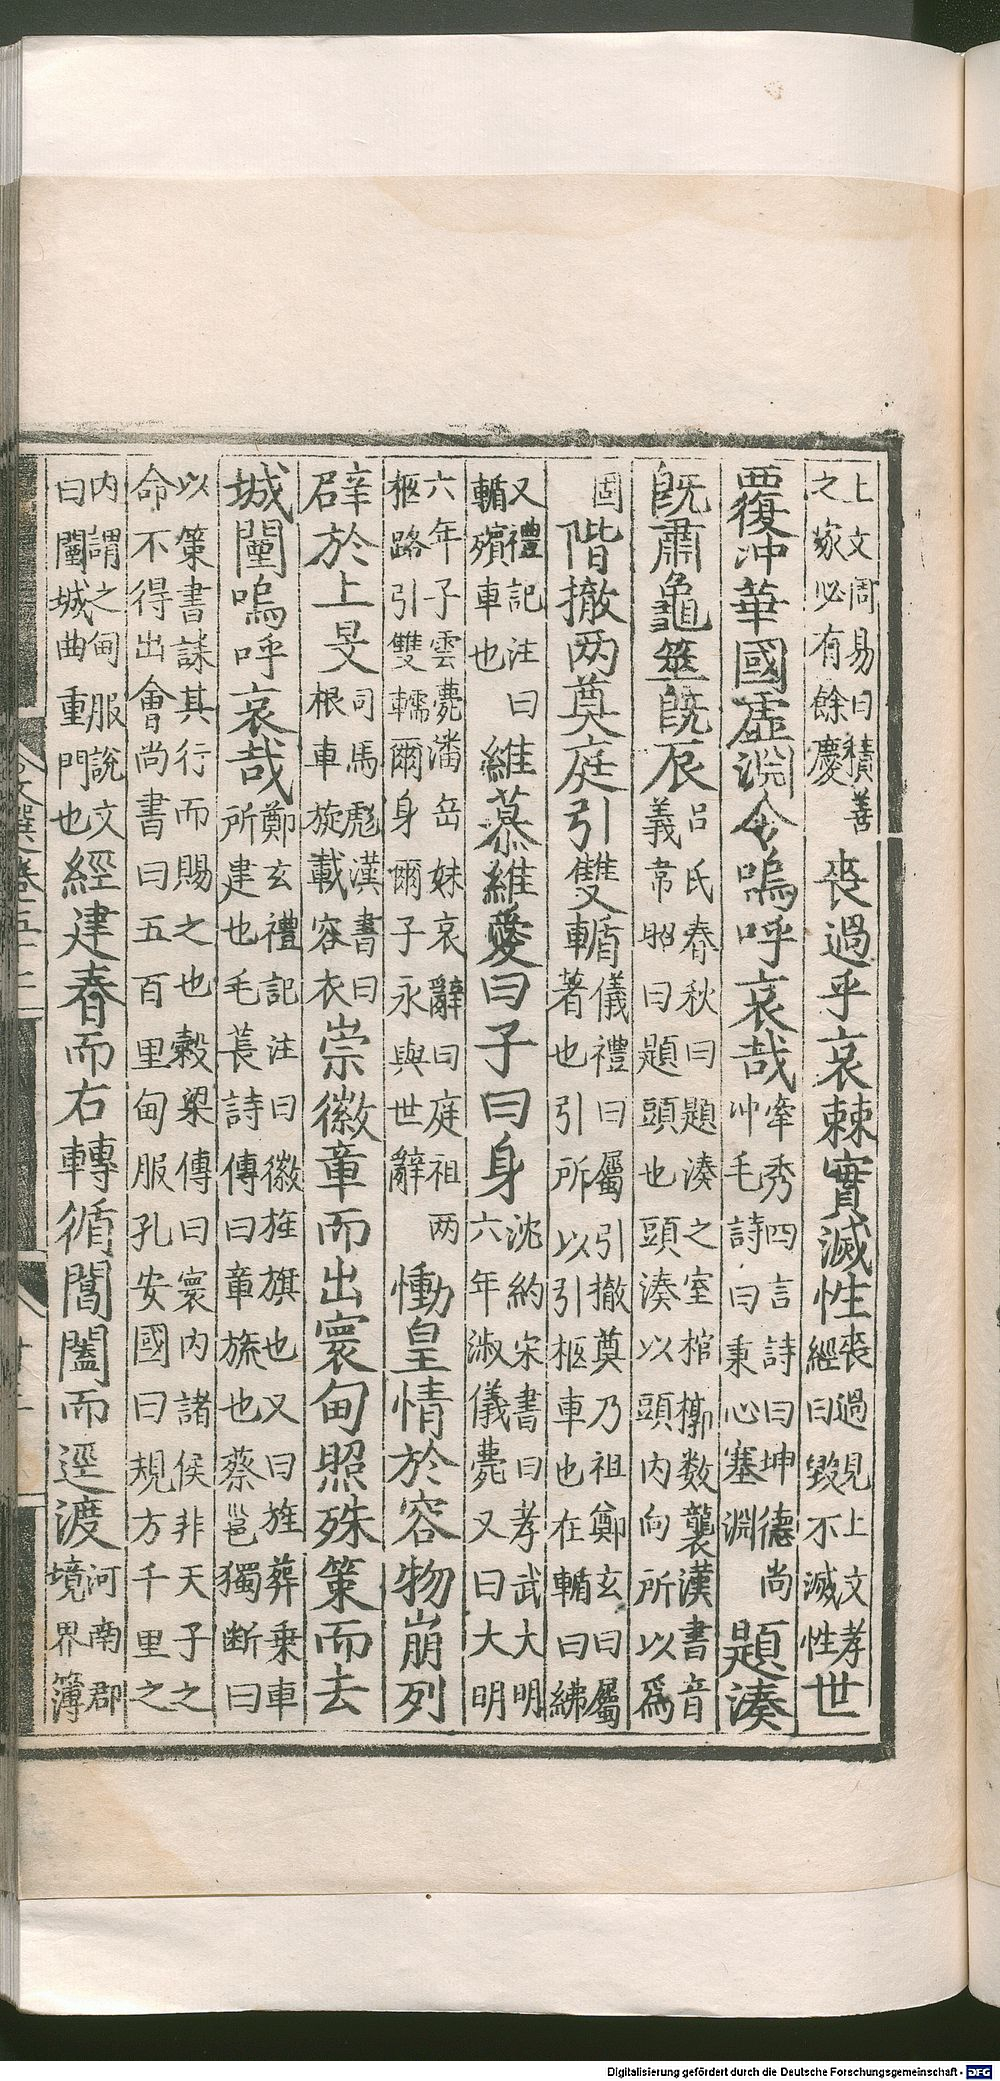 上文周易曰積善之家必有餘慶喪過乎哀棘實滅性喪過見上文孝經曰毀不滅性世
覆沖華國虛淵令嗚呼哀哉牽秀四言詩曰坤德尚沖毛詩曰秉心塞淵題湊
既肅龜筮既辰呂氏春秋曰題湊之室棺槨数襲漢書音義韋昭曰題頭也頭湊以頭内向所以爲
固階撤两奠庭引雙輴儀禮曰屬引撤奠乃祖鄭玄曰屬著也引所以引柩車也在輴曰紼
又禮記注曰輴殯車也維慕維愛曰子曰身沈約宋書曰孝武大明六年淑儀薨又曰大明
六年子雲薨潘岳妹哀辭曰庭祖两柩路引雙轜爾身爾子永與世辭慟皇情於容物崩列
辟於上旻司馬彪漢書曰根車旋載容衣崇徽章而出寰甸照殊策而去
城闉嗚呼哀哉鄭玄禮記注曰徽旌旗也又曰旌葬乘車所建也毛萇詩傳曰章旒也蔡邕獨断曰
以策書誄其行而賜之也穀梁傳曰寰内諸侯非天子之命不得出會尚書曰五百里甸服孔安國曰規方千里之
内謂之甸服說文曰闉城曲重門也經建春而右轉循閶闔而逕渡河南郡境界簿
Digitalisierung gefördert durch die Deutsche Forschungsgemeinschaft - DFG